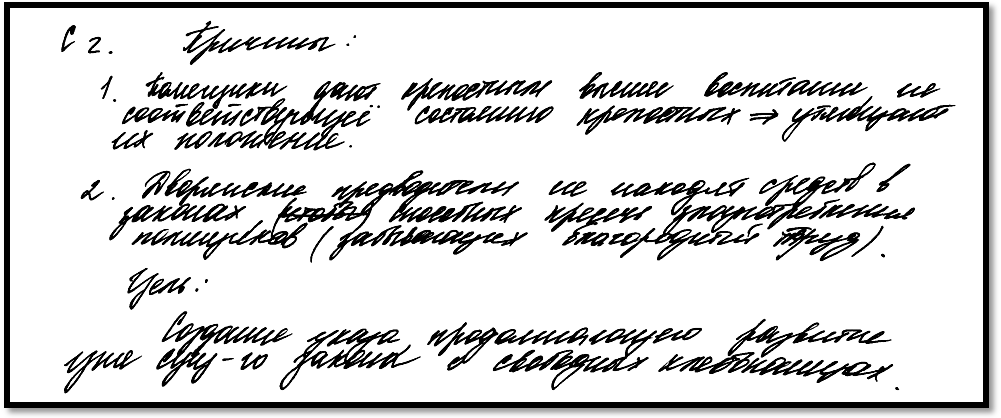 С г. Причины:
1. Помещики дают крепостным высшее воспитание не
соответствующее состоянию крепостных ⇒ ухудшают
их положение.
2. Дворянские предводители не находят средств в
законах способных пресечь злоупотребления
помещиков (забывающих благородный труд).
Цель:
Создание указа продолжающего развитие
уже сущ-го закона о свободных хлебопашцах.